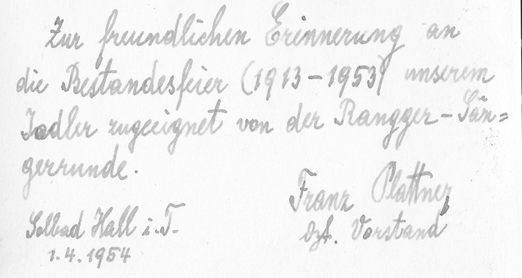 Zur freundlichen Erinnerung an
die Bestandesfeier (1913-1953) unserem
Jodler zugeeignet von der Rangger-Sän=
gerrunde.
Franz Plattner
Solbad Hall i. T.
Vorstand
1.4.1954